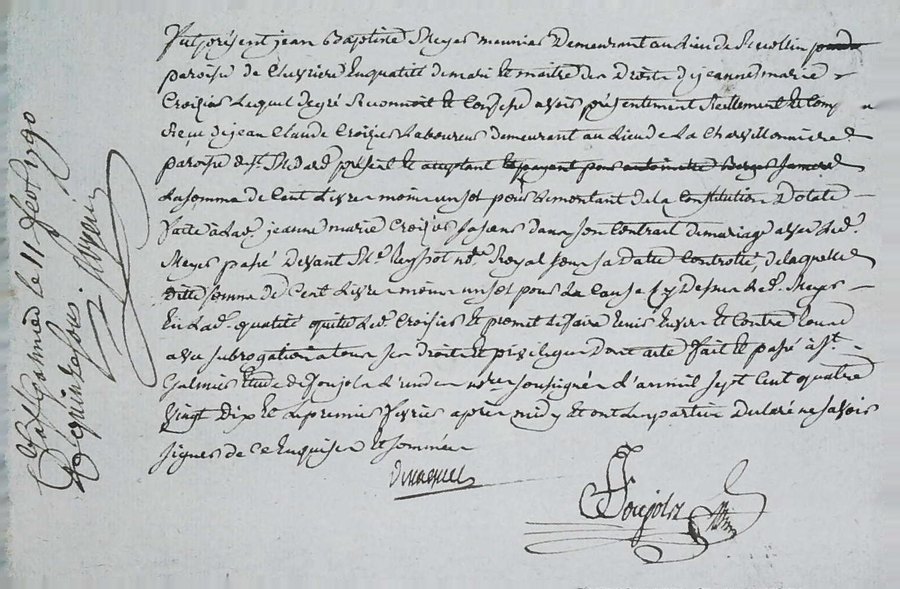 Fut présent jean Baptiste Meyer meunier Demeurant au Lieu de
paroisse de Chevriere En qualité de mari Et maitre des Droits de jeanne marie
Croisier Lequel de gré Reconnoit Et Confesse avoir présentement Réellement Et Comp
Reçu de jean Claude Croisier Laboureur demeurant au Lieu de La Charvillonniere
paroisse de St. Medard présent Et acceptant Et payant pour antoinette
La somme de Cent Livres moins un sol pour Le montant de la Constitution Dotale
faite a Lad. jeanne marie Croisier sa soeur dans son Contrat de mariage avec Led.
Meyer passé Devant Me. Reyssot nore. Royal sous sa Date Controllé, de laquelle
ditte somme de Cent Livres moins un sol pour La Cause Cy Dessus Led. Meyer
En Lad. qualité quitte Led. Croisier Et promet Le faire tenir Envers Et Contre tous
avec subrogation a tous ses droits Et privileges Dont acte fait Et passé a St.
Galmier Etude de Soujols L'un des nores soussignés L'an mil sept Cent quatre
vingt Dix Et Le premier fevrier après midy Et ont Les parties Declaré ne savoir
signer de Ce Enquises Et sommées
Soujols
St Galmier le 11 fevr. 1790
Reçu quinze sous.